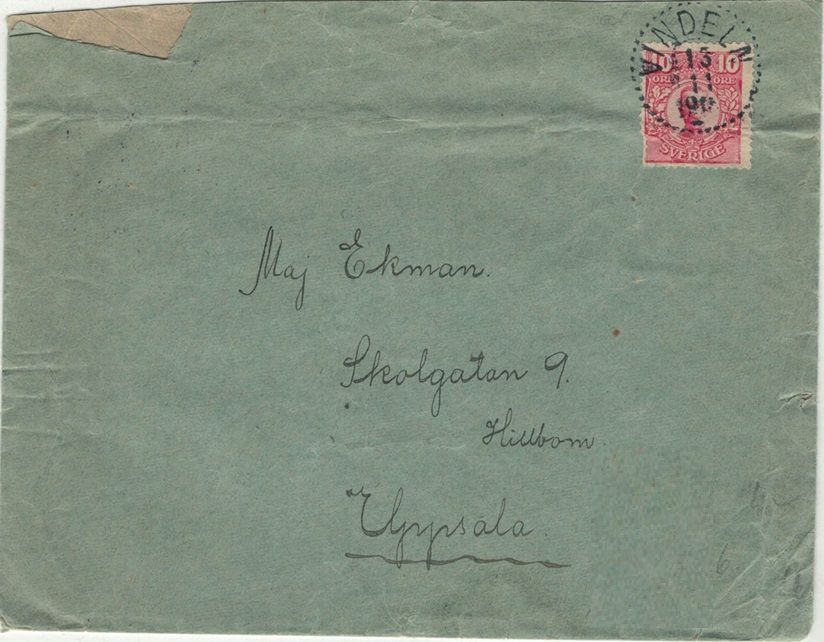 VINDELN
13
11
10 10
ÖRE ÖRE
SVERIGE
Maj Ekman.
Skolgatan 9.
Hillbom.
Uppsala.